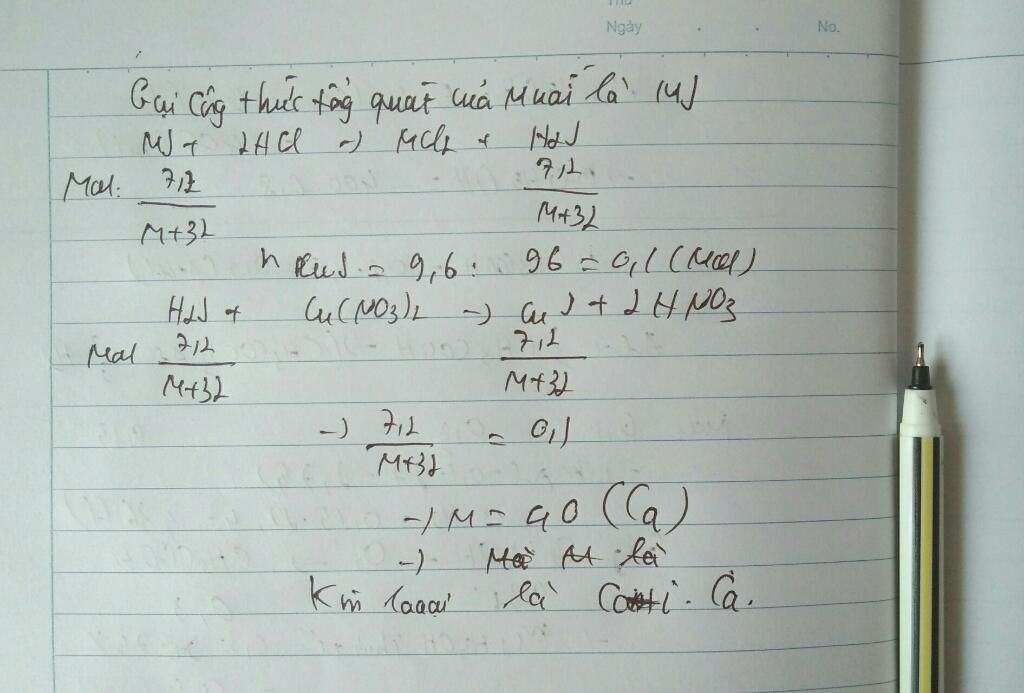 Thứ
Ngày . . No.
Gọi công thức tổng quát của muối là MS
MS + 2HCl -> MCl2 + H2S
Mol: 7,2/M+32 7,2/M+32
n CuS = 9,6 : 96 = 0,1 (Mol)
H2S + Cu(NO3)2 -> CuS + 2HNO3
Mol 7,2/M+32 7,2/M+32
-> 7,2/M+32 = 0,1
-> M = 40 (Ca)
-> M là
Kim loại là Ca.